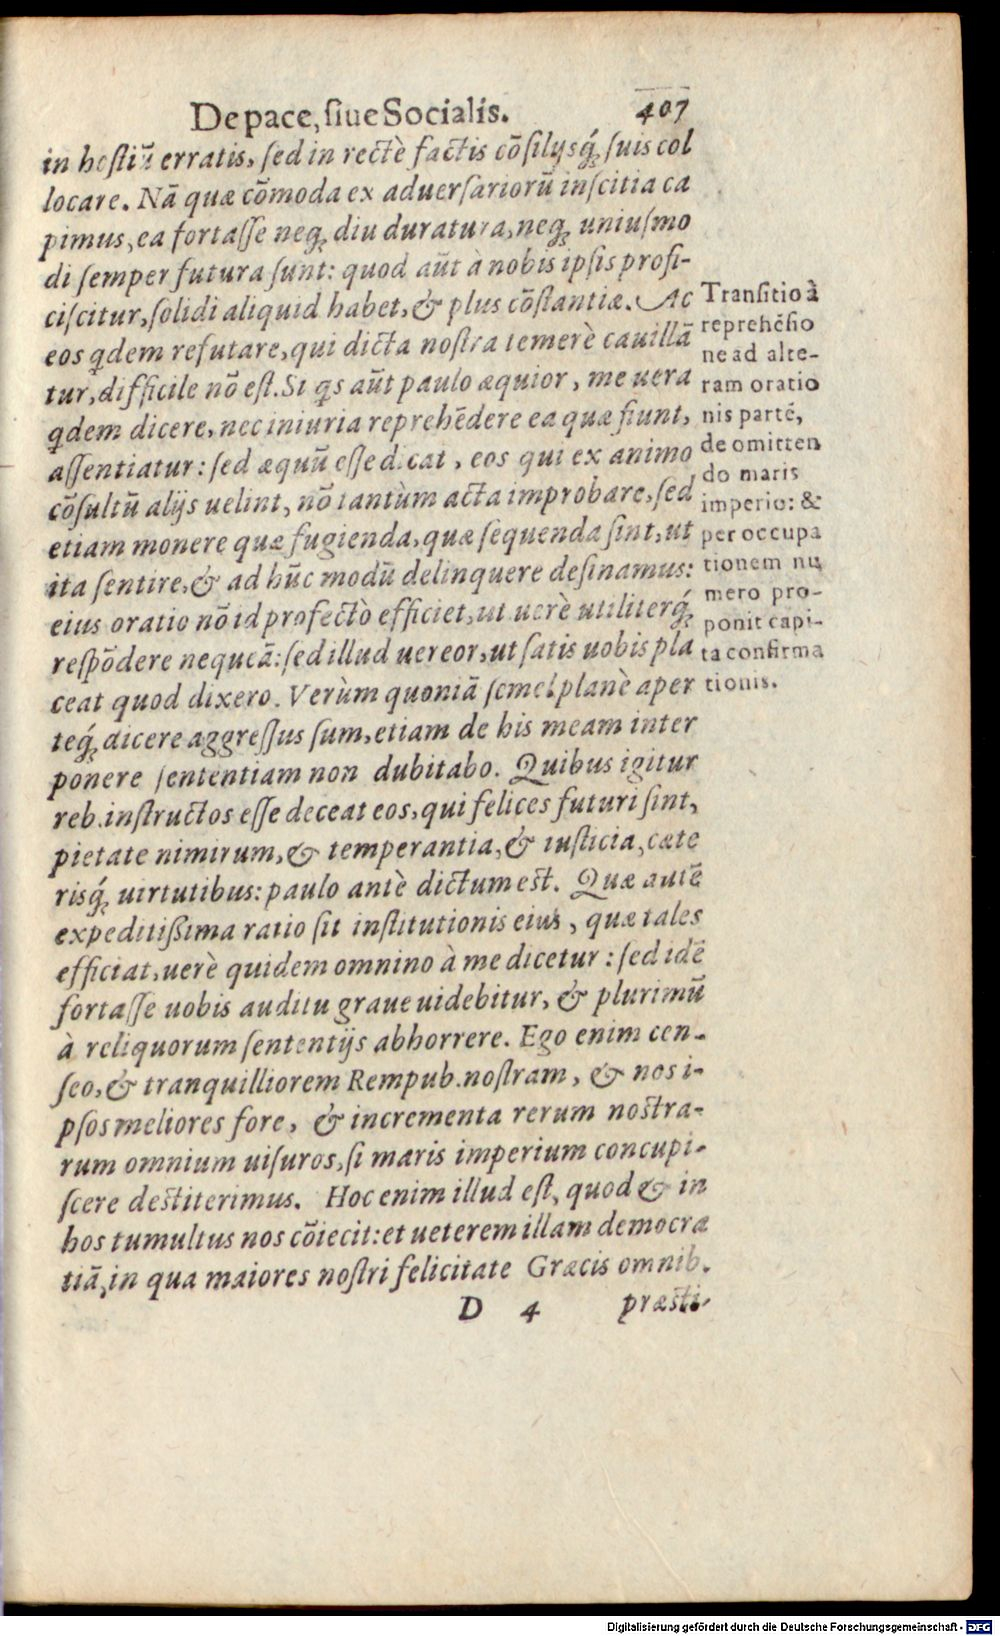 De pace, siue Socialis. 407
in hostiū erratis, sed in rectè factis cōsilijsq́; suis col
locare. Nā quæ cōmoda ex aduersariorū inscitia ca
pimus, ea fortasse neq; diu duratura, neq; uniusmo
di semper futura sunt: quod aūt à nobis ipsis profi-
ciscitur, solidi aliquid habet, & plus cōstantiæ. Ac
eos qdem refutare, qui dicta nostra temerè cauillā
tur, difficile nō est. Si qs aūt paulo æquior, me uera
qdem dicere, nec iniuria reprehēdere ea quæ fiunt,
assentiatur: sed æquū esse dicat, eos qui ex animo
cōsultū alijs uelint, nō tantùm acta improbare, sed
etiam monere quæ fugienda, quæ sequenda sint, ut
ita sentire, & ad hūc modū delinquere desinamus:
eius oratio nō id profectò efficiet, ut uerè utiliterq́;
respōdere nequeā: sed illud uereor, ut satis uobis pla
ceat quod dixero. Verùm quoniā semel planè aper
teq́; dicere aggressus sum, etiam de his meam inter
ponere sententiam non dubitabo. Quibus igitur
reb. instructos esse deceat eos, qui felices futuri sint,
pietate nimirum, & temperantia, & iusticia, cæte
risq́; uirtutibus: paulo antè dictum est. Quæ autē
expeditißima ratio sit institutionis eius, quæ tales
efficiat, uerè quidem omnino à me dicetur: sed idē
fortasse uobis auditu graue uidebitur, & plurimū
à reliquorum sententijs abhorrere. Ego enim cen-
seo, & tranquilliorem Rempub. nostram, & nos i-
psos meliores fore, & incrementa rerum nostra-
rum omnium uisuros, si maris imperium concupi-
scere destiterimus. Hoc enim illud est, quod & in
hos tumultus nos cōiecit: et ueterem illam democra
tiā, in qua maiores nostri felicitate Græcis omnib.
D 4 præsti-
Transitio à
reprehēsio
ne ad alte-
ram oratio
nis partē,
de omitten
do maris
imperio: &
per occupa
tionem nu
mero pro-
ponit capi-
ta confirma
tionis.
Digitalisierung gefördert durch die Deutsche Forschungsgemeinschaft - DFG